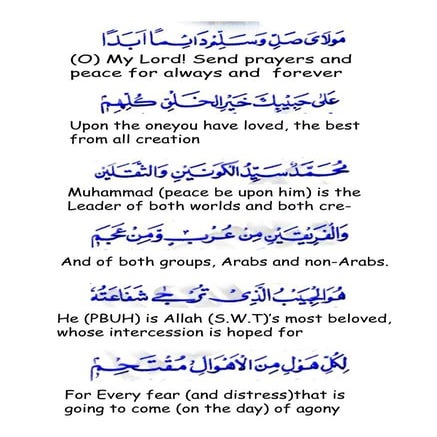 مَوْلَايَ صَلِّ وَسَلِّمْ دَائِمًا أَبَدًا
(O) My Lord! Send prayers and
peace for always and forever
عَلَى حَبِيبِكَ خَيْرِ الْخَلْقِ كُلِّهِمِ
Upon the oneyou have loved, the best
from all creation
مُحَمَّدٌ سَيِّدُ الْكَوْنَيْنِ وَالثَّقَلَيْنِ
Muhammad (peace be upon him) is the
Leader of both worlds and both cre-
وَالْفَرِيقَيْنِ مِنْ عُرْبٍ وَمِنْ عَجَمِ
And of both groups, Arabs and non-Arabs.
هُوَ الْحَبِيبُ الَّذِي تُرْجَى شَفَاعَتُهُ
He (PBUH) is Allah (S.W.T)'s most beloved,
whose intercession is hoped for
لِكُلِّ هَوْلٍ مِنَ الْأَهْوَالِ مُقْتَحِمِ
For Every fear (and distress)that is
going to come (on the day) of agony